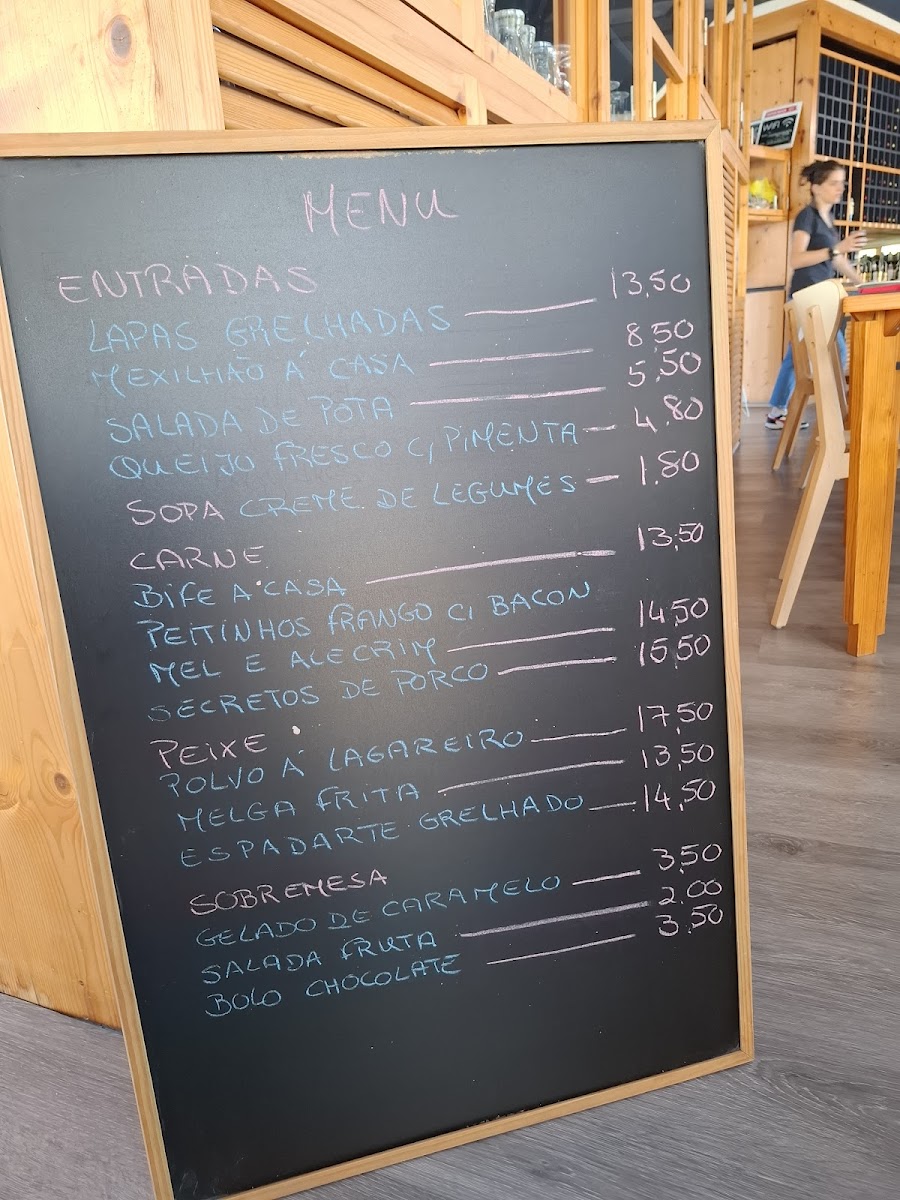 MENU
ENTRADAS
LAPAS GRELHADAS 13,50
MEXILHÃO Á CASA 8,50
SALADA DE POTA 5,50
QUEIJO FRESCO C/ PIMENTA 4,80
SOPA CREME DE LEGUMES 1.80
CARNE
BIFE A CASA 13,50
PEITINHOS FRANGO C/ BACON
MEL E ALECRIM 14,50
SECRETOS DE PORCO 15,50
PEIXE
POLVO Á LAGAREIRO 17,50
MELGA FRITA 13,50
ESPADARTE GRELHADO 14,50
SOBREMESA
GELADO DE CARAMELO 3,50
SALADA FRUTA 2.00
BOLO CHOCOLATE 3.50
WiFi